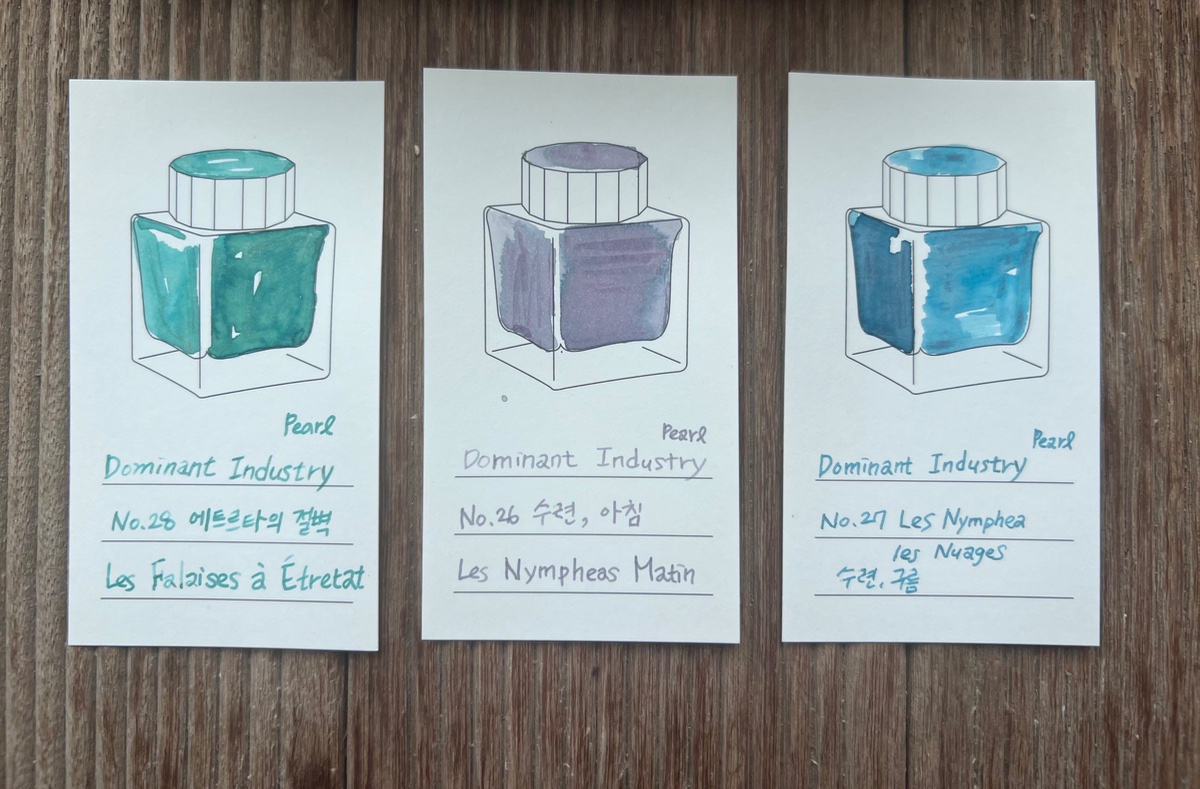 Pearl
Dominant Industry
No.28 에트르타의 절벽
Les Falaises à Étretat
Pearl
Dominant Industry
No.26 수련, 아침
Les Nympheas Matin
Pearl
Dominant Industry
No.27 Les Nymphea
les Nuages
수련, 구름